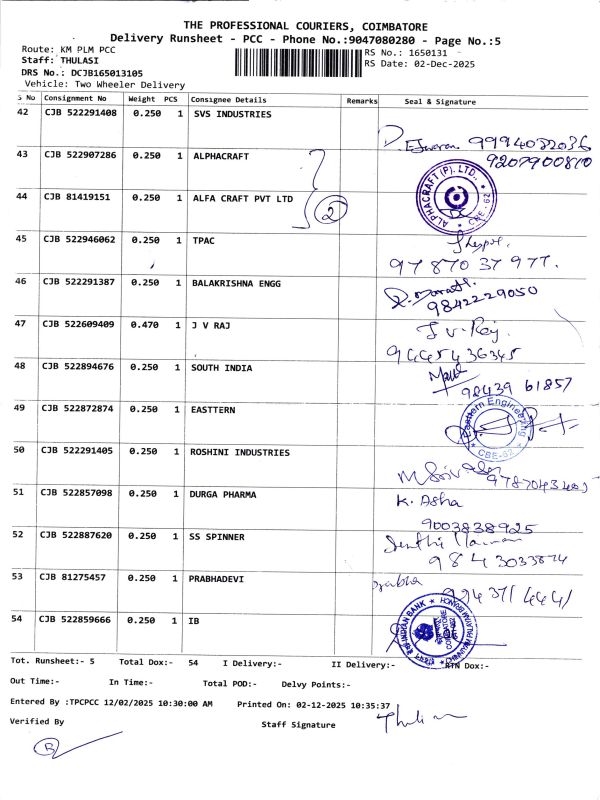 THE PROFESSIONAL COURIERS, COIMBATORE
Delivery Runsheet - PCC - Phone No.:9047080280 - Page No.:5
Route: KM PLM PCC
RS No.: 1650131
Staff: THULASI
RS Date: 02-Dec-2025
DRS No.: DCJB165013105
Vehicle: Two Wheeler Delivery
S No Consignment No Weight PCS Consignee Details Remarks Seal & Signature
42 CJB 522291408 0.250 1 SVS INDUSTRIES
9994032036
43 CJB 522907286 0.250 1 ALPHACRAFT
9207900810
44 CJB 81419151 0.250 1 ALFA CRAFT PVT LTD 2
ALPHACRAFT (P). LTD., CBE-62
45 CJB 522946062 0.250 1 TPAC
97870 37 977.
46 CJB 522291387 0.250 1 BALAKRISHNA ENGG
9842229050
47 CJB 522609409 0.470 1 J V RAJ J V. Raj.
94454 36345
48 CJB 522894676 0.250 1 SOUTH INDIA
98439 61857
49 CJB 522872874 0.250 1 EASTTERN
Easttern Engineering CBE-62
50 CJB 522291405 0.250 1 ROSHINI INDUSTRIES
51 CJB 522857098 0.250 1 DURGA PHARMA K. Asha
9003838925
52 CJB 522887620 0.250 1 SS SPINNER
984 3033874
53 CJB 81275457 0.250 1 PRABHADEVI Prabha
54 CJB 522859666 0.250 1 IB
INDIAN BANK
Tot. Runsheet:- 5 Total Dox:- 54 I Delivery:- II Delivery:- RTN Dox:-
Out Time:- In Time:- Total POD:- Delvy Points:-
Entered By :TPCPCC 12/02/2025 10:30:00 AM Printed On: 02-12-2025 10:35:37
Verified By Staff Signature